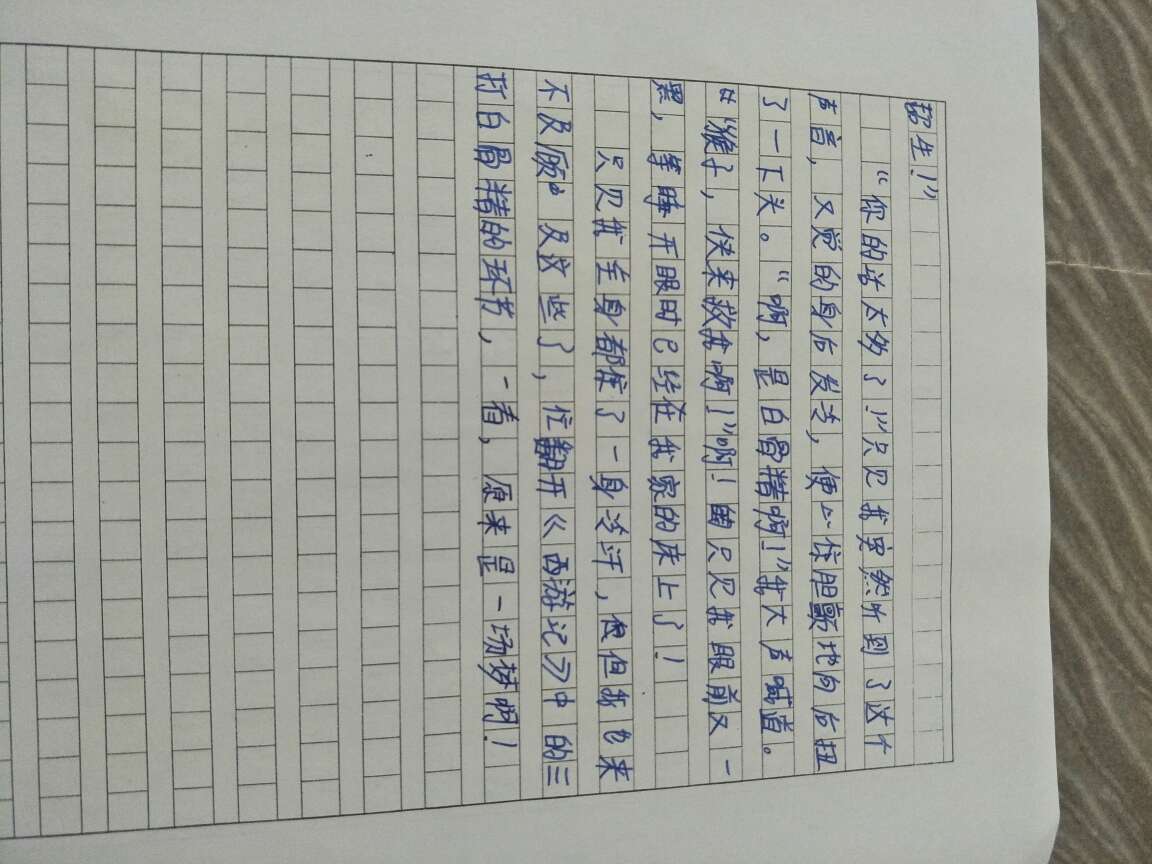 生！”
“你的话太多了！”只见我突然听到了这个
声音，又觉的身后发学，便心惊胆颤地向后扭
了一下头。“啊，是白骨精啊！”我大声喊道。
“猴子，快来救我啊！”啊！只见我眼前又一
黑，等睁开眼时已经在我家的床上了！
只见我全身都住了一身冷汗，但我也来
不及顾及这些了，忙翻开《西游记》中的三
打白骨精的环节，一看，原来是一场梦啊！